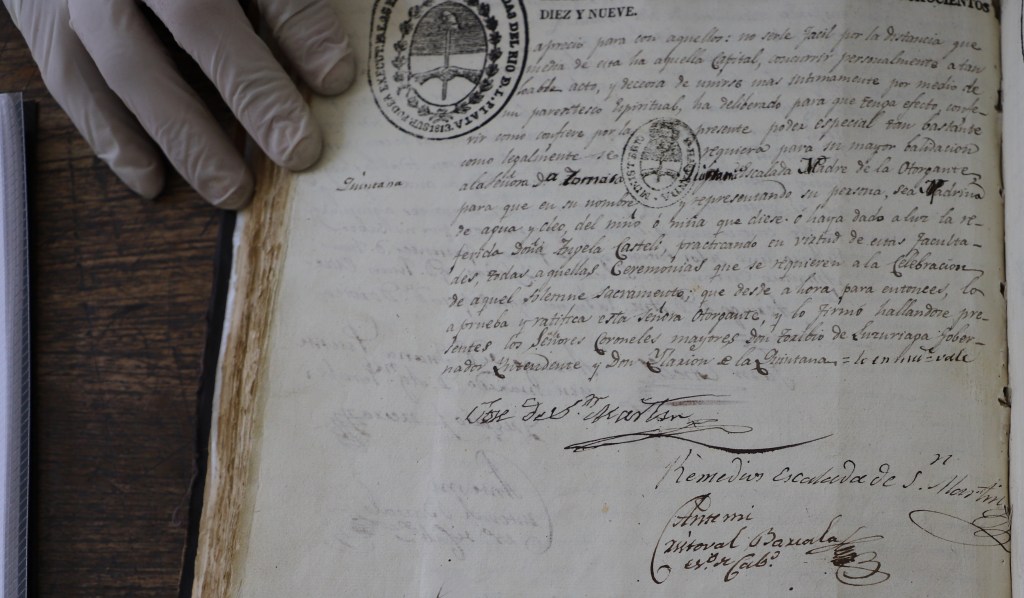 OCHOCIENTOS
DIEZ Y NUEVE.
aprecio para con aquellos: no serle facil por la distancia que
media de esta ha aquella Capital, concurrir personalmente a tan
loable acto, y deceosa de unirse mas intimamente por medio de
un parentesco Espiritual, ha deliberado para que tenga efecto, confe-
rir como confiere por la presente poder especial tan bastante
como legalmente se requiera para su mayor balidacion
Quintana
a la Señora Dª Tomasa Escalada Madre de la Otorgante
para que en su nombre y representando su persona, sea Madrina
de agua y oleo, del niño ó niña que diese ó haya dado a luz la re-
ferida Doña Castelí, practicando en virtud de estas faculta-
des, todas aquellas Ceremonias que se requieren a la Celebracion
de aquel Solemne Sacramento; que desde ahora para entonces, lo
aprueba y ratifica esta Señora Otorgante, y lo firmó hallandose pre-
sentes los Señores Coroneles mayores Don Toribio de Luzuriaga Gober-
nador Intendente y Don Ylarion de la Quintana =
Jose de Sn Martin
Remedios Escalada de Sn Martin
Antemi
Cristoval Barcala
esno de Cabo